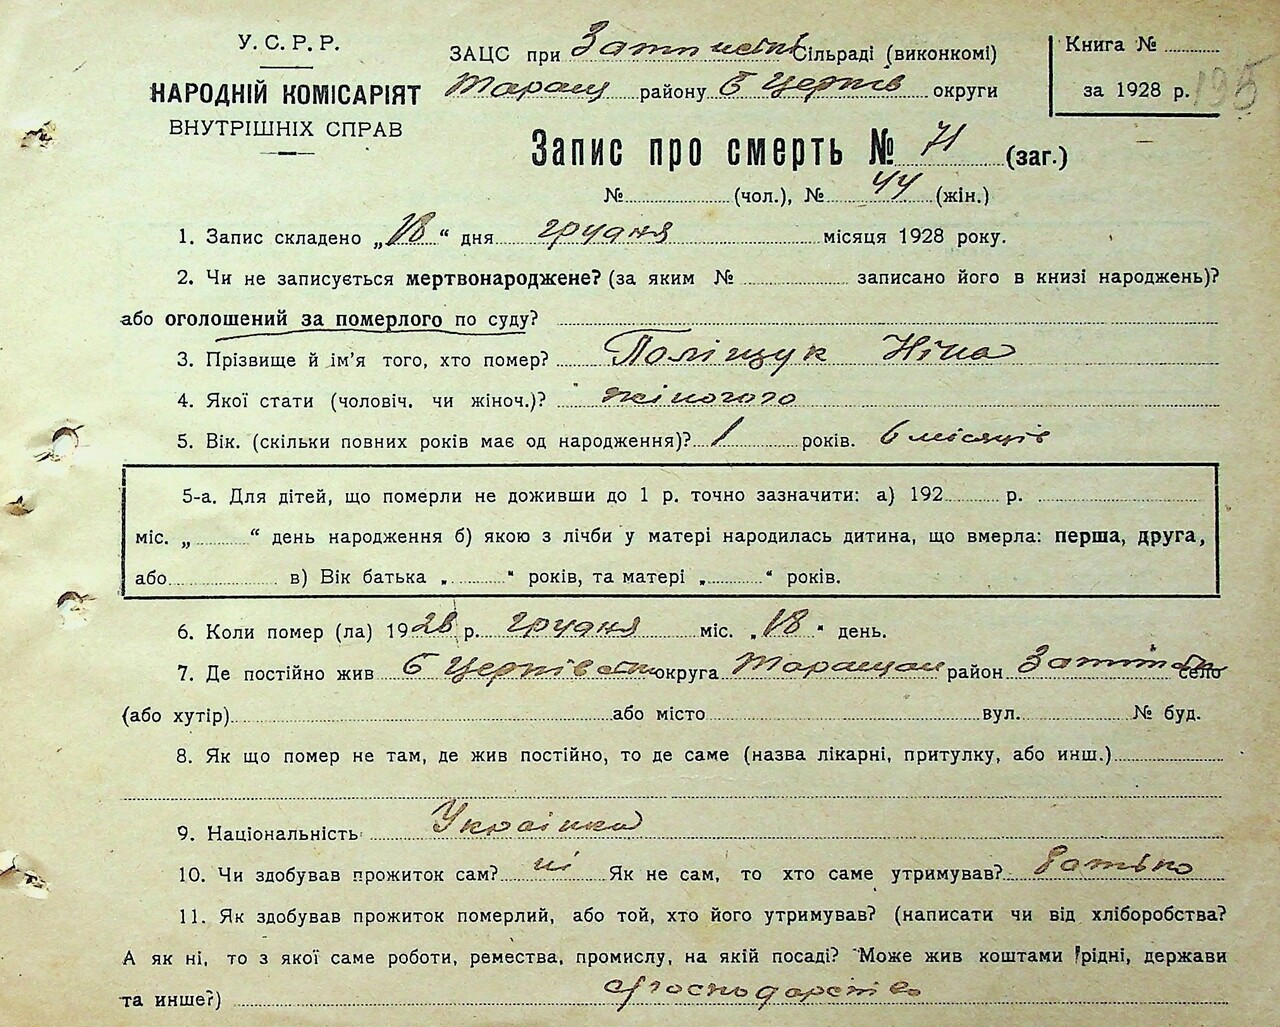 У.С.Р.Р.
НАРОДНІЙ КОМІСАРІЯТ
ВНУТРІШНІХ СПРАВ
ЗАЦС при Сільраді (виконкомі)
Таращ району Б Церків округи
Книга №
за 1928 р. 195
Запис про смерть № 71 (заг.)
№ (чол.), № 44 (жін.)
1. Запис складено „18“ дня грудня місяця 1928 року.
2. Чи не записується мертвонароджене? (за яким № записано його в книзі народжень)?
або оголошений за померлого по суду?
3. Прізвище й ім'я того, хто помер? Поліщук Ніна
4. Якої стати (чоловіч. чи жіноч.)? жіночого
5. Вік. (скільки повних років має од народження)? 1 років. 6 місяців
5-а. Для дітей, що померли не доживши до 1 р. точно зазначити: а) 192 р.
міс. „ “ день народження б) якою з лічби у матері народилась дитина, що вмерла: перша, друга,
або в) Вік батька „ “ років, та матері „ “ років.
6. Коли помер (ла) 1928 р. грудня міс. „18“ день.
7. Де постійно жив Б Церківська округа Таращан район село
(або хутір) або місто вул. № буд.
8. Як що помер не там, де жив постійно, то де саме (назва лікарні, притулку, або инш.)
9. Національність Українка
10. Чи здобував прожиток сам? ні Як не сам, то хто саме утримував? батько
11. Як здобував прожиток померлий, або той, хто його утримував? (написати чи від хліборобства?
А як ні, то з якої саме роботи, ремества, промислу, на якій посаді? Може жив коштами рідні, держави
та инше?)